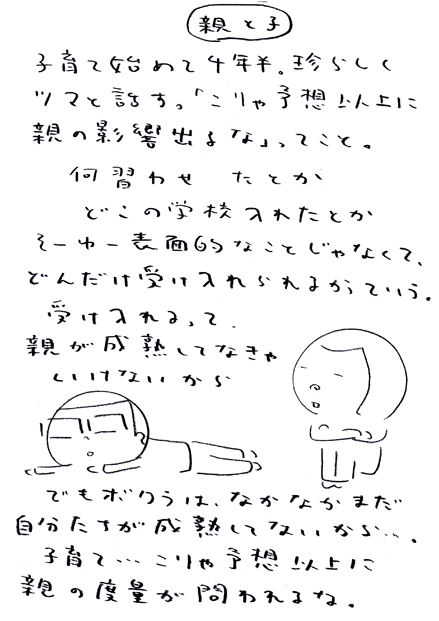 親と子
子育て始めて4年半。珍らしく
ツマと話す。「こりゃ予想以上に
親の影響出るな」ってこと。
何習わせたとか
どこの学校入れたとか
そーゆー表面的なことじゃなくて、
どんだけ受け入れられるかっていう。
受け入れるって、
親が成熟してなきゃ
いけないから
でもボクらは、なかなかまだ
自分たちが成熟してないから…。
子育て…こりゃ予想以上に
親の度量が問われるな。